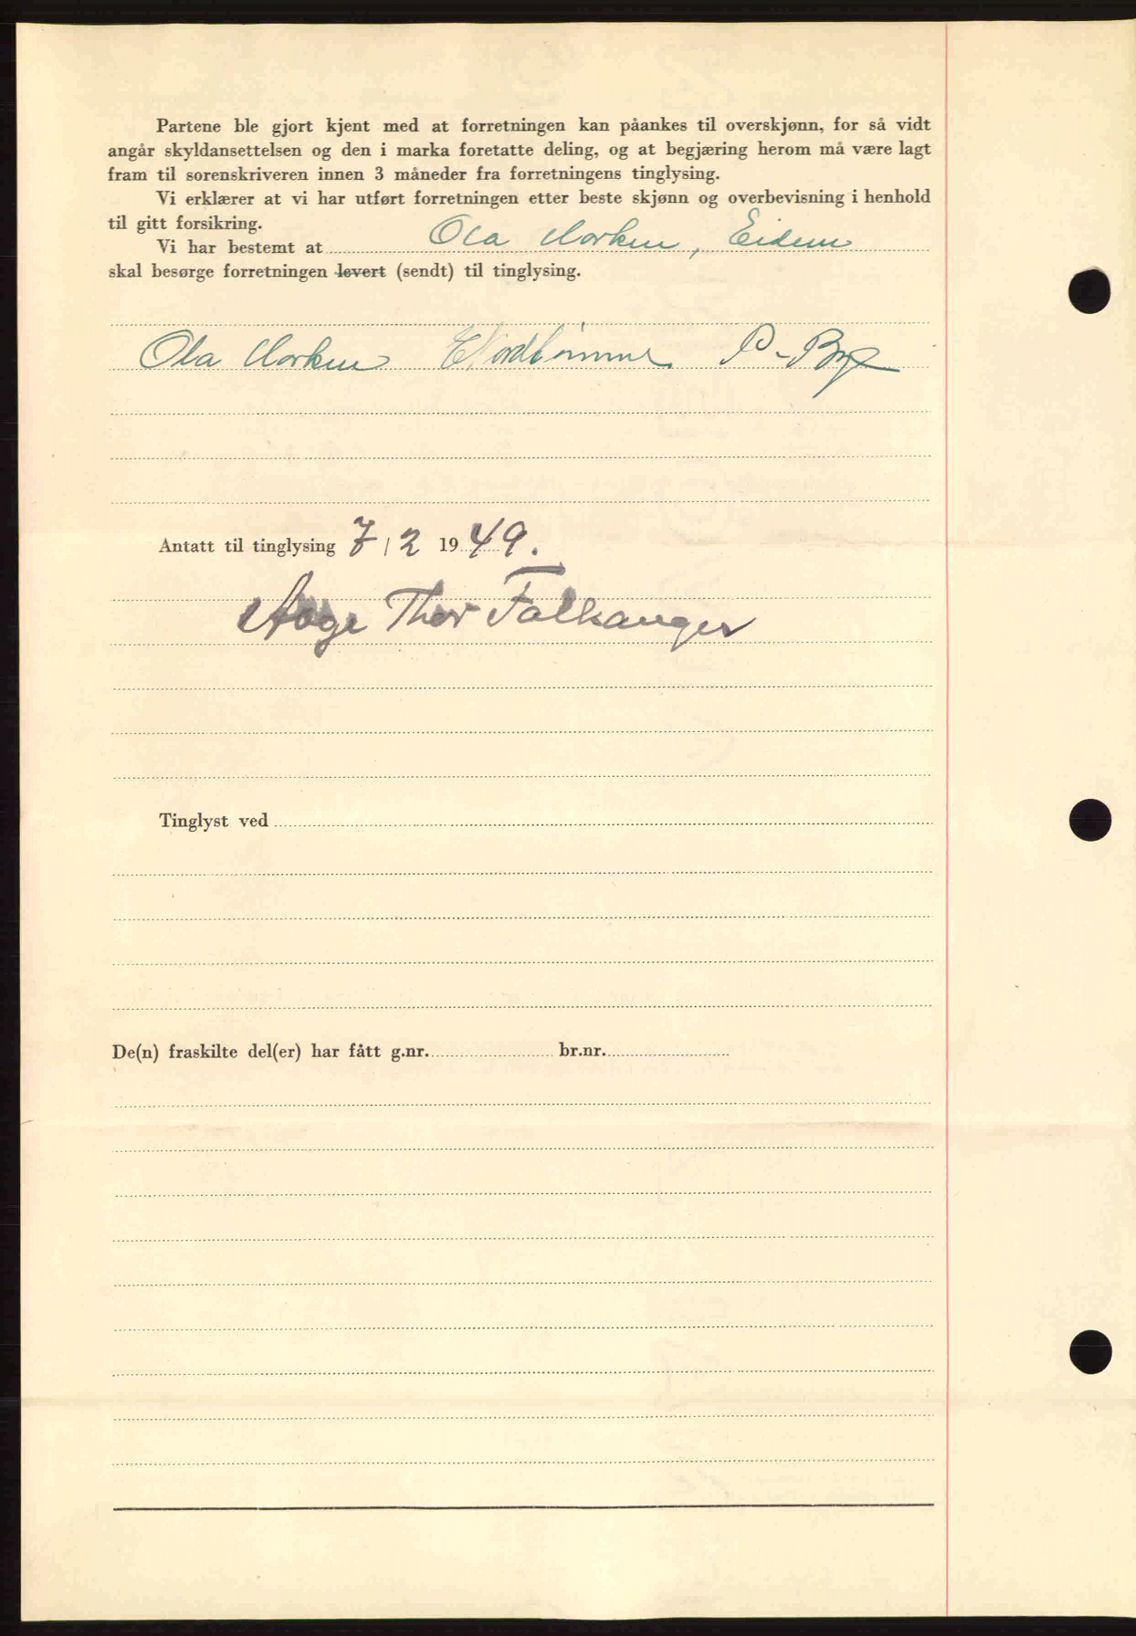 Partene ble gjort kjent med at forretningen kan påankes til overskjønn, for så vidt
angår skyldansettelsen og den i marka foretatte deling, og at begjæring herom må være lagt
fram til sorenskriveren innen 3 måneder fra forretningens tinglysing.
Vi erklærer at vi har utført forretningen etter beste skjønn og overbevisning i henhold
til gitt forsikring.
Vi har bestemt at Ola Morken, Eidem
skal besørge forretningen levert (sendt) til tinglysing.
Ola Morken
Antatt til tinglysing 7/2 1949.
Aage Thor Falkanger
Tinglyst ved
De(n) fraskilte del(er) har fått g.nr. br.nr.